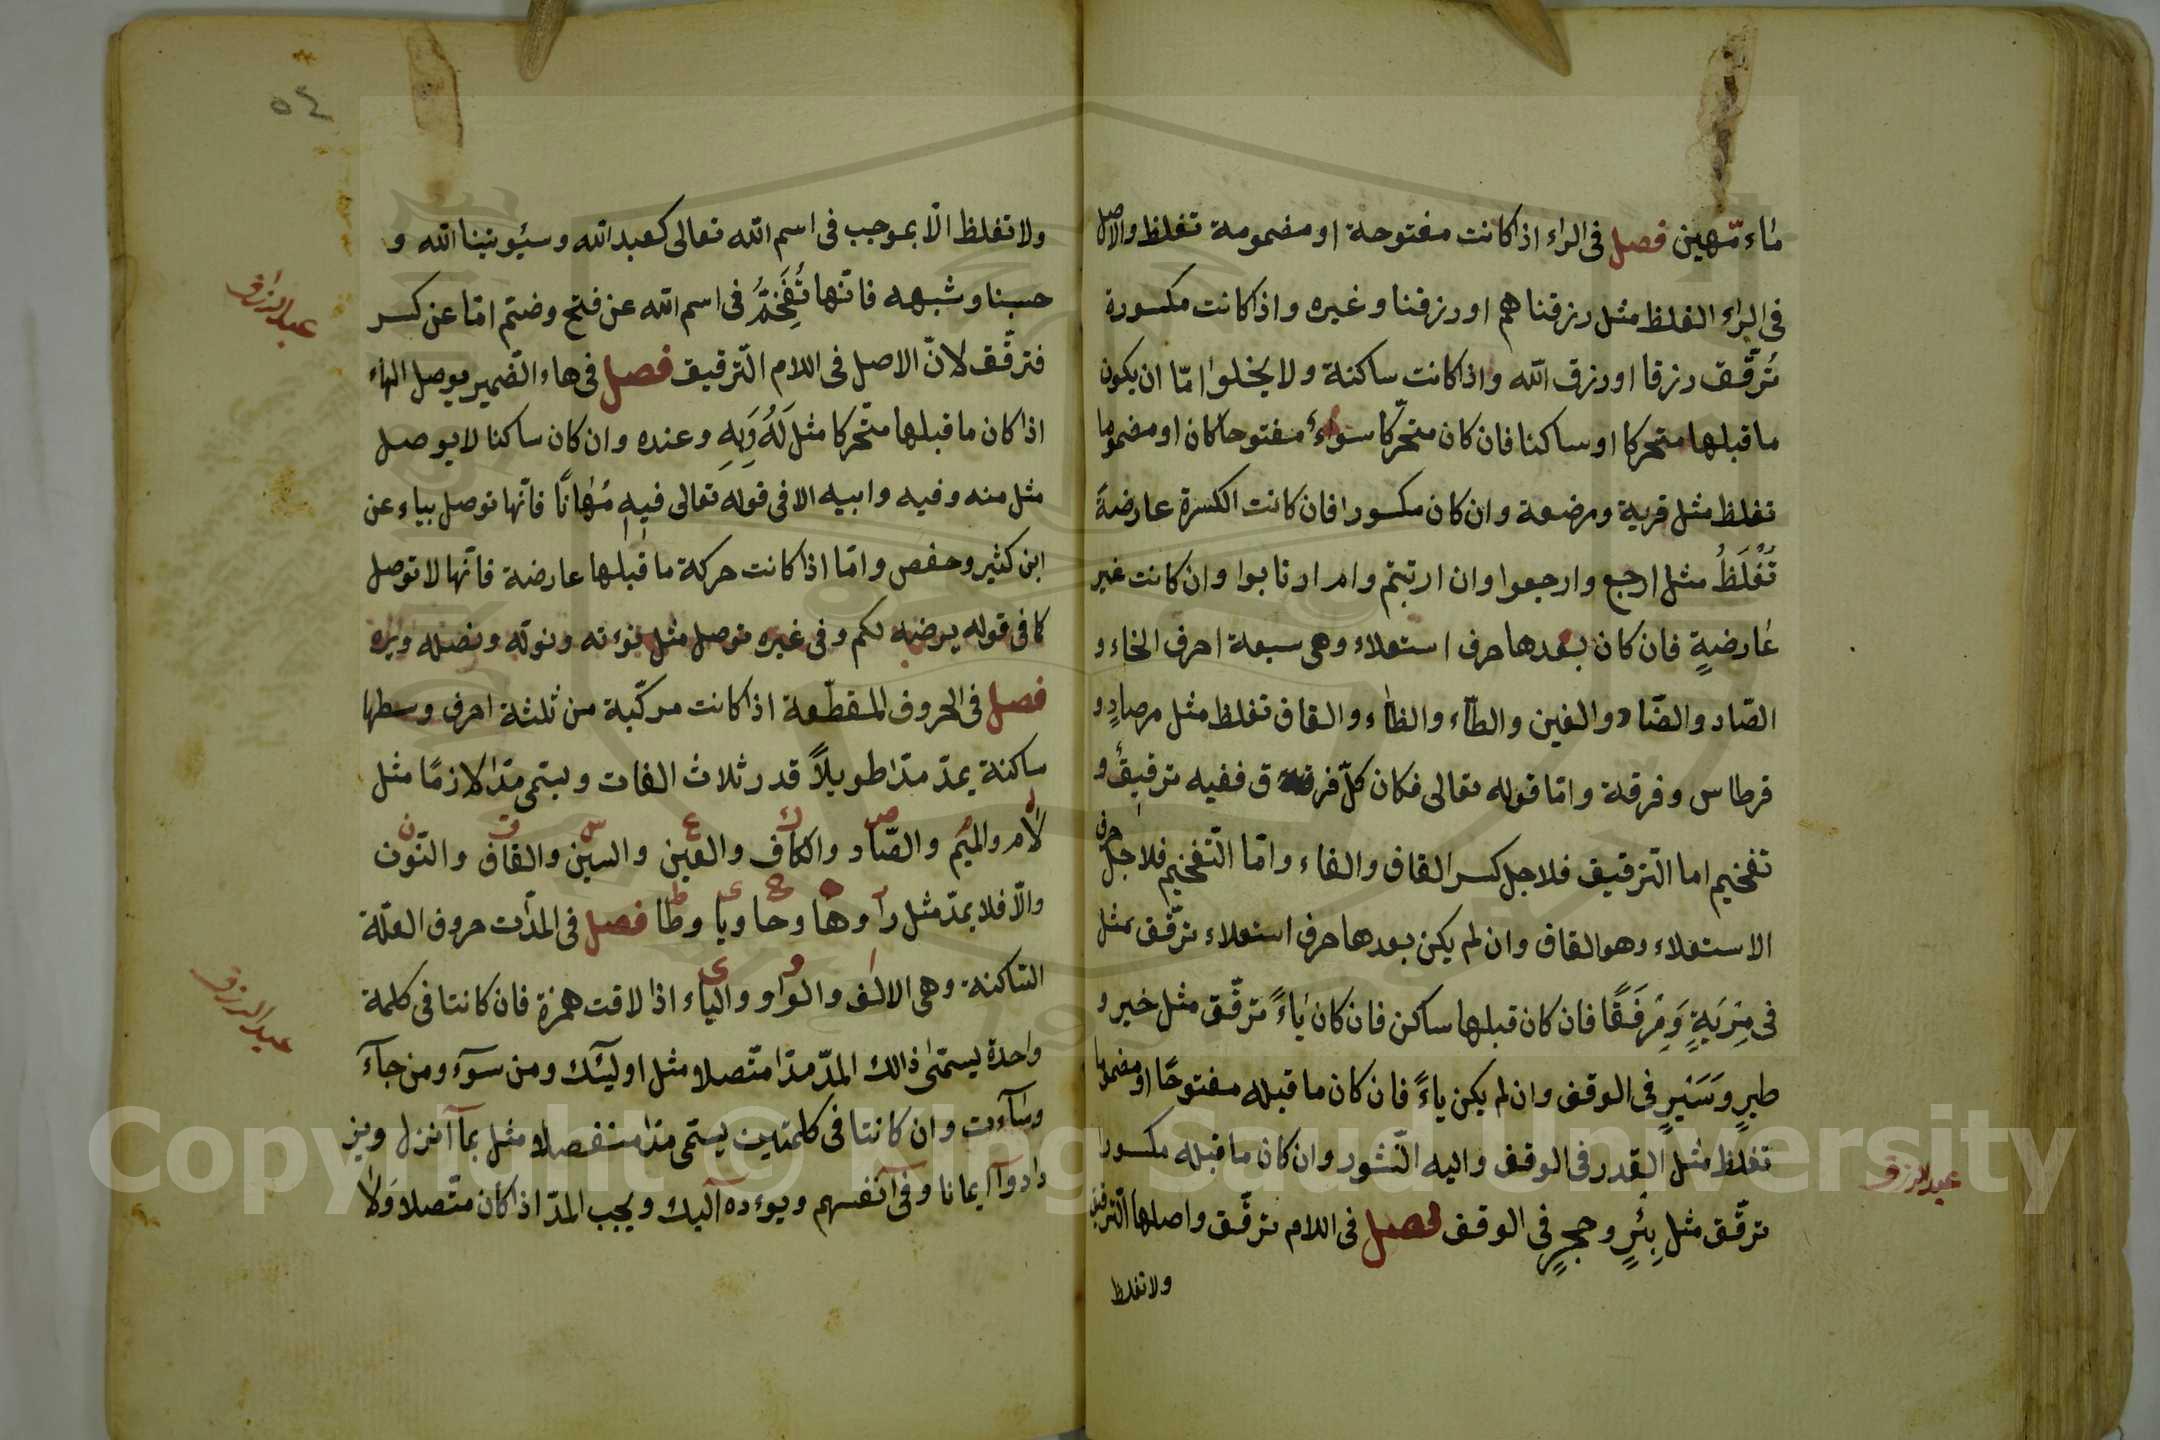 ماء مّهين فصل فى الراء اذا كانت مفتوحة او مضمومة تغلظ والاصل
فى الراء الغلظ مثل رزقناهم او رزقنا وغيره واذا كانت مكسورة
تُرَقّق رزقا او رزق الله واذا كانت ساكنة ولا يخلوا امّا ان يكون
ما قبلها متحركا او ساكنا فان كان متحرّكا سواءٌ مفتوحا كان او مضموما
تغلظ مثل قرية ومرضعة وان كان مكسورا فان كانت الكسرة عارضة
تُغْلَظُ مثل ارجع وارجعوا وان ارتبتم وام ارتابوا وان كانت غير
عارضةٍ فان كان بعدها حرف استعلاء وهى سبعة احرف الخاء و
الصّاد والضّاد والغين والطّاء والظاء والقاف تغلظ مثل مرصادٍ و
قرطاس وفرقة وامّا قوله تعالى فكان كلّ فرق ففيه ترقيقٌ و
تفخيم اما الترقيق فلاجل كسر القاف والفاء وامّا التّفخيم فلاجل حرف
الاستعلاء وهو القاف وان لم يكن بعدها حرف استعلاء ترقّق مثل
فى مِرْيَةٍ وَمِرْفَقًا فان كان قبلها ساكن فان كان ياءً ترقّق مثل خير و
طيرٍ وَسَيْرٍ فى الوقف وان لم يكن ياءً فان كان ما قبله مفتوحًا او مضموما
تغلظ مثل القدر فى الوقف واليه النّشور وان كان ما قبله مكسورا
ترقّق مثل بِئْرٍ وحجرٍ فى الوقف فصل فى اللام ترقّق واصلها الترقيق
ولا تغلظ
عبد الرزاق
٥٤
ولا تغلظ الّا بموجب فى اسم الله تعالى كعبد الله وسيُوتينا الله و
حسبنا وشبهه فانّها تُفَخَّمُ فى اسم الله عن فتح وضمّ امّا عن كسر
فترقّق لانّ الاصل فى اللام التّرقيق فصل فى هاء الضّمير يوصل الهاء
اذا كان ما قبلها متّحركا مثل لَهُ وَبِهِ وعنده وان كان ساكنا لا يوصل
مثل منه وفيه وابيه الا فى قوله تعالى فيهِ مُهانًا فانّها توصل بياء عن
ابن كثير وحفص وامّا اذا كانت حركة ما قبلها عارضة فانّها لا توصل
كما فى قوله يرضه لكم وفى غيره توصل مثل نؤته ونولّه ونصله ويره
فصل فى الحروف المقطّعة اذا كانت مركّبة من ثلثة احرف وسطها
ساكنة يمدّ مدّا طويلاً قدر ثلاث الفات ويسمى مدّا لازمًا مثل
لام والميم والصّاد والكاف والعين والسين والقاف والنّون
والّا فلا يمدّ مثل را وها وحا ويا وطا فصل فى المدّات حروف العلّة
السّاكنة وهى الالف والواو والياء اذا لاقت همزة فان كانتا فى كلمة
واحدة يسمّى ذالك المدّ مدّا متّصلا مثل اولٓئك ومن سوٓء ومن جآءَ
وسآءت وان كانتا فى كلمتين يسمّى مدّا منفصلا مثل بمآ انزل ويز
دادوآ ايمانا وفىٓ انفسهم ويؤدهٓ اليك ويجب المدّ اذا كان متّصلا وَلا
عبد الرزاق
عبد الرزق
Copyright © King Saud University